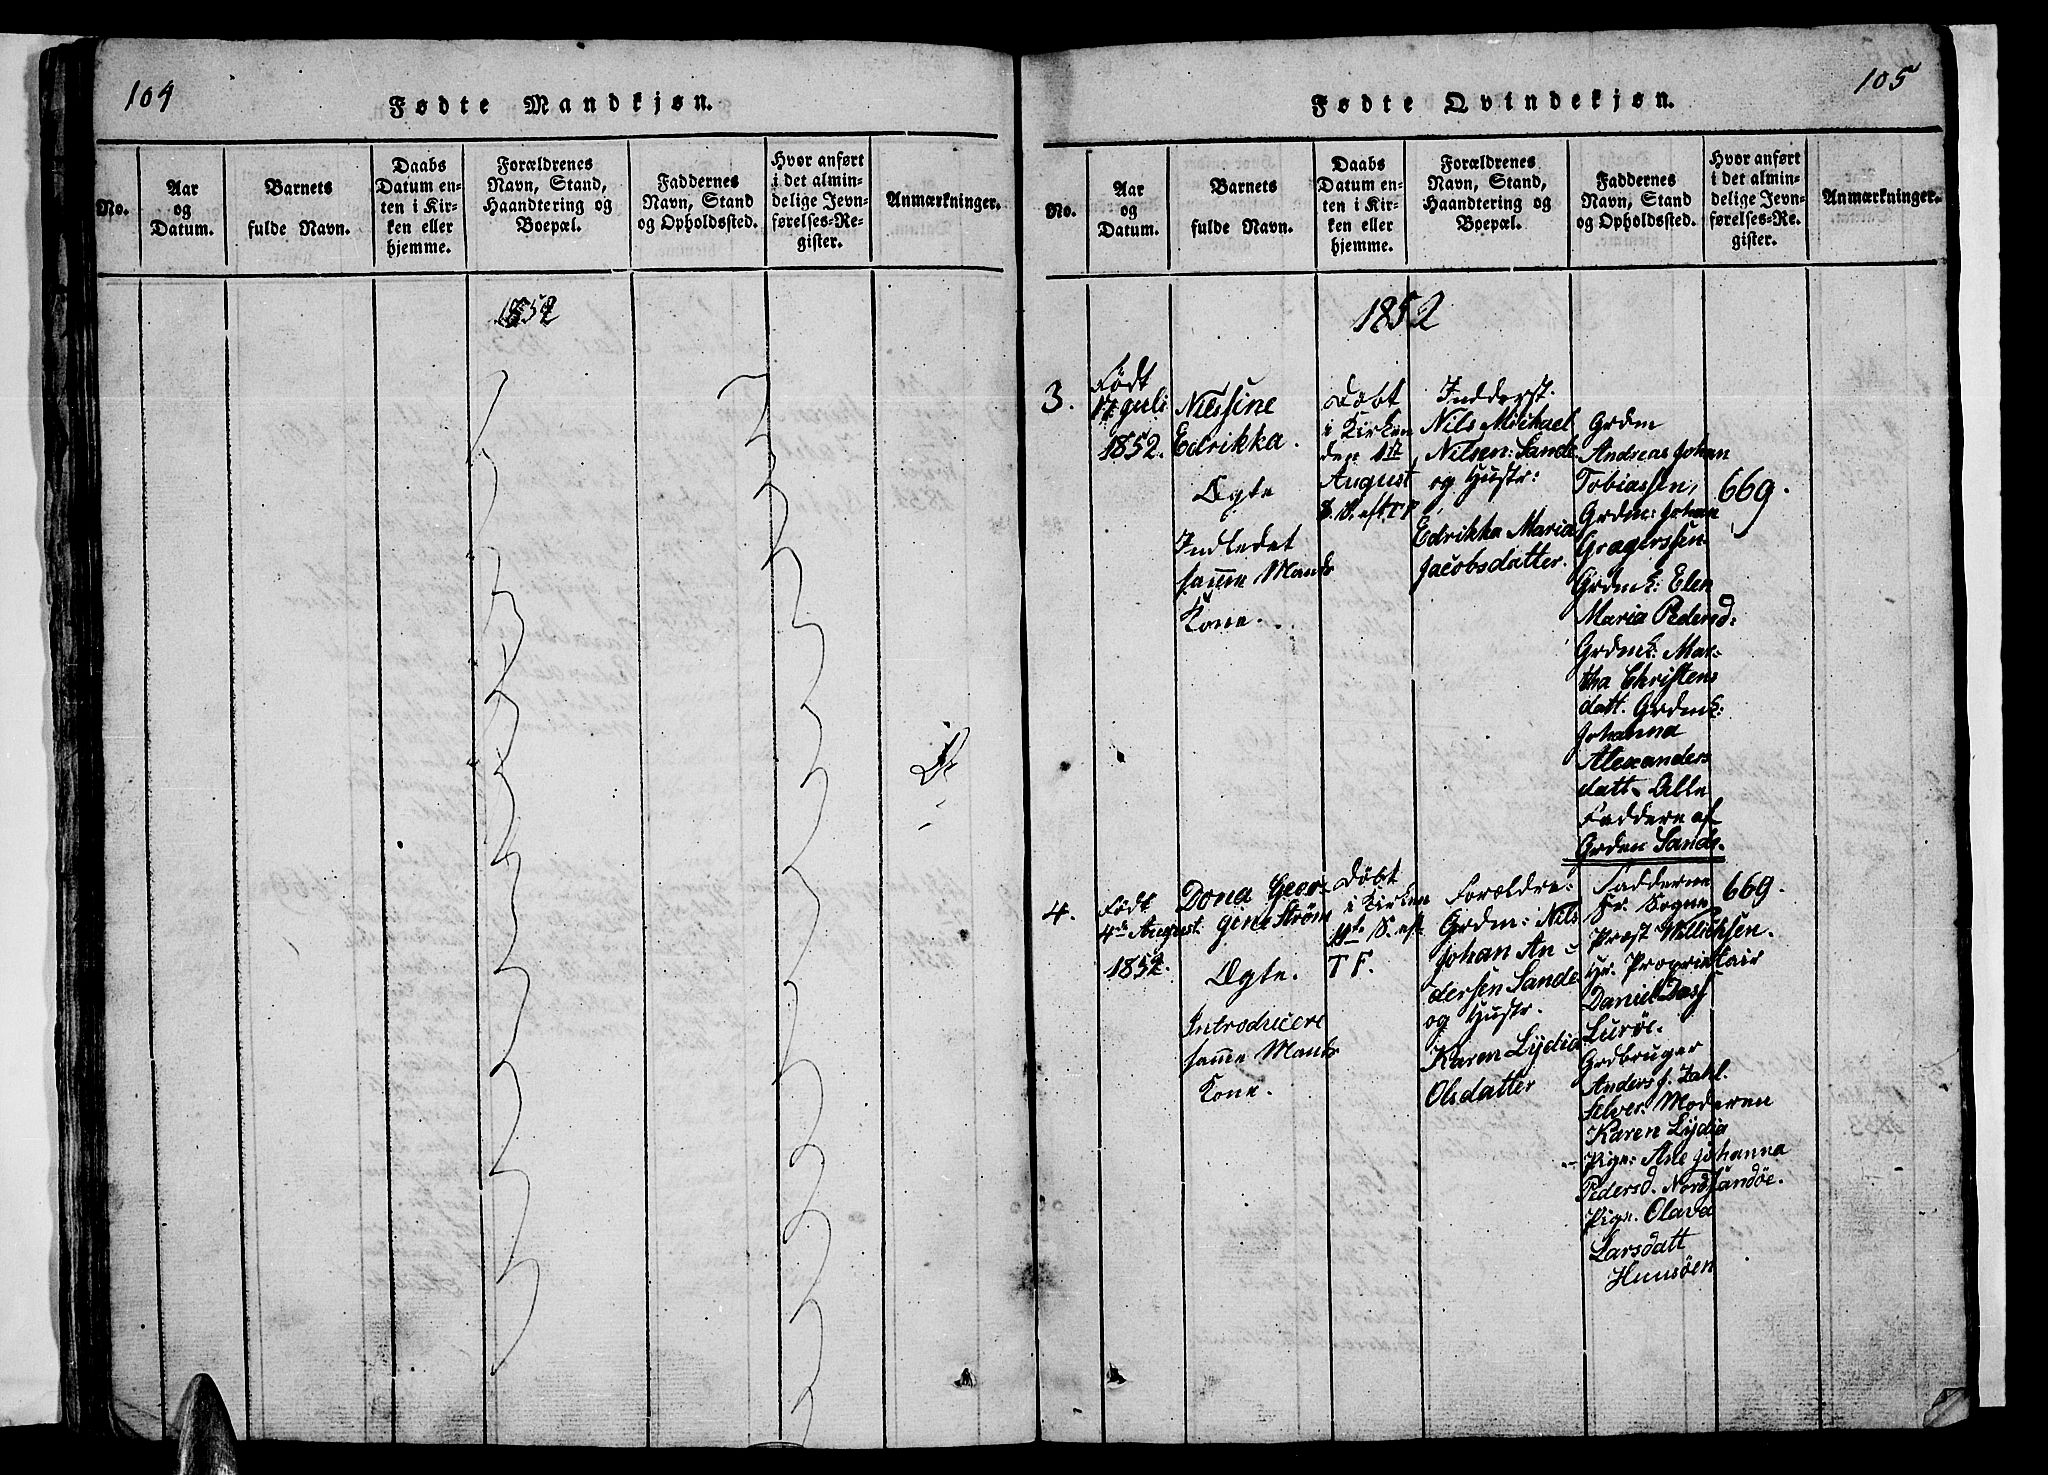 104
Fødte Mandkjøn.
No.
Aar
og
Datum.
Barnets
fulde Navn.
Daabs
Datum en-
ten i Kir-
ken eller
hjemme.
Forældrenes
Navn, Stand,
Haandtering og
Boepæl.
Faddernes
Navn, Stand
og Opholdssted.
Hvor anført
i det almin-
delige Jevn-
førelses-Re-
gister.
Anmærkninger.
1852
105
Fødte Qvindekjøn.
No.
Aar
og
Datum.
Barnets
fulde Navn.
Daabs
Datum en-
ten i Kir-
ken eller
hjemme.
Forældrenes
Navn, Stand,
Haandtering og
Boepæl.
Faddernes
Navn, Stand
og Opholdssted.
Hvor anført
i det almin-
delige Jevn-
førelses-Re-
gister.
Anmærkninger.
1852
3.
Født
17 Juli
1852.
Nilssine
Edrikka.
Ægte
Indledet
samme Mands
Kone.
Døbt
i Kirken
den 1ste
August
8. S. eft T F
Indderst.
Nils Michael
Nilsen: Sande
og Hustr:
Edrikka Maria
Jacobsdatter.
Grdm
Andreas Johan
Tobiassen,
Grdm: Johan
Gragerssen
Grdmk: Elen
Maria Pedersd:
Grdmk: Mar-
tha Christens
datt. Grdmk:
Johanna
Alexanders
datt. Alle
Faddere af
Grden Sande.
669.
4.
Født
4de August
1852.
Dona Geor-
gine Strøm
Ægte.
Introducere
samme Mands
Kone.
Døbt
i Kirken
S. eft
T F.
Forældre:
Grdm: Nils
Johan An-
dersen Sande
og Hustr.
Karen Lydia
Olsdatter
Fadderne
Hr. Sogne
Præst Willichsen.
Hr. Proprietair
Daniel Dass
Lurøe.
Grdbruger
Anders J. Zahl.
Selver. Moderen
Karen Lydia
Pige: Ane Johanna
Pedersd. Nordsandøe.
Pige. Olava
Larsdatt
Huusøen
669.